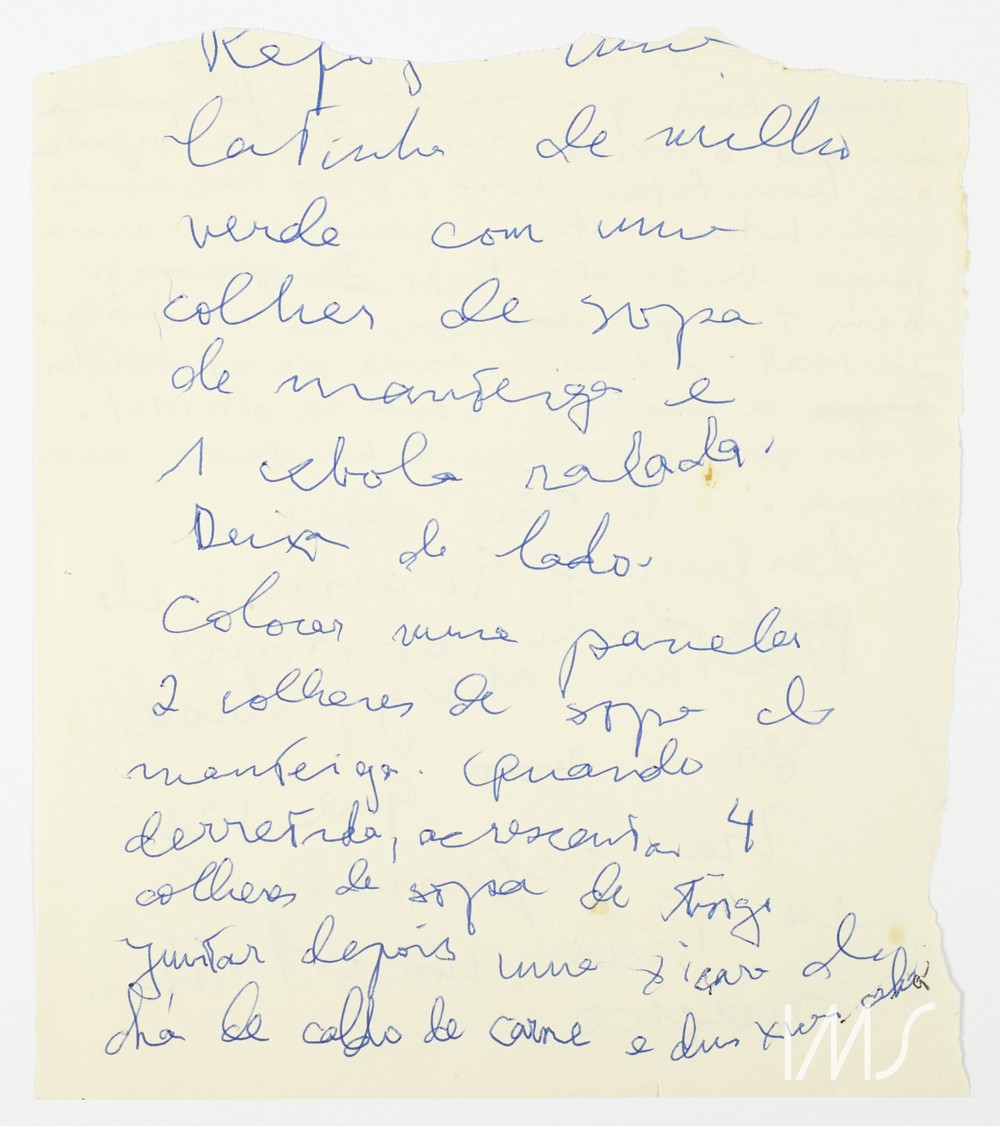 Refogar uma
latinha de milho
verde com uma
colher de sopa
de manteiga e
1 cebola ralada.
Deixa de lado.
Colocar numa panela
2 colheres de sopa de
manteiga. Quando
derretida, acrescentar 4
colheres de sopa de trigo
Juntar depois uma xícara de
chá de caldo de carne e duas xícaras
IMS